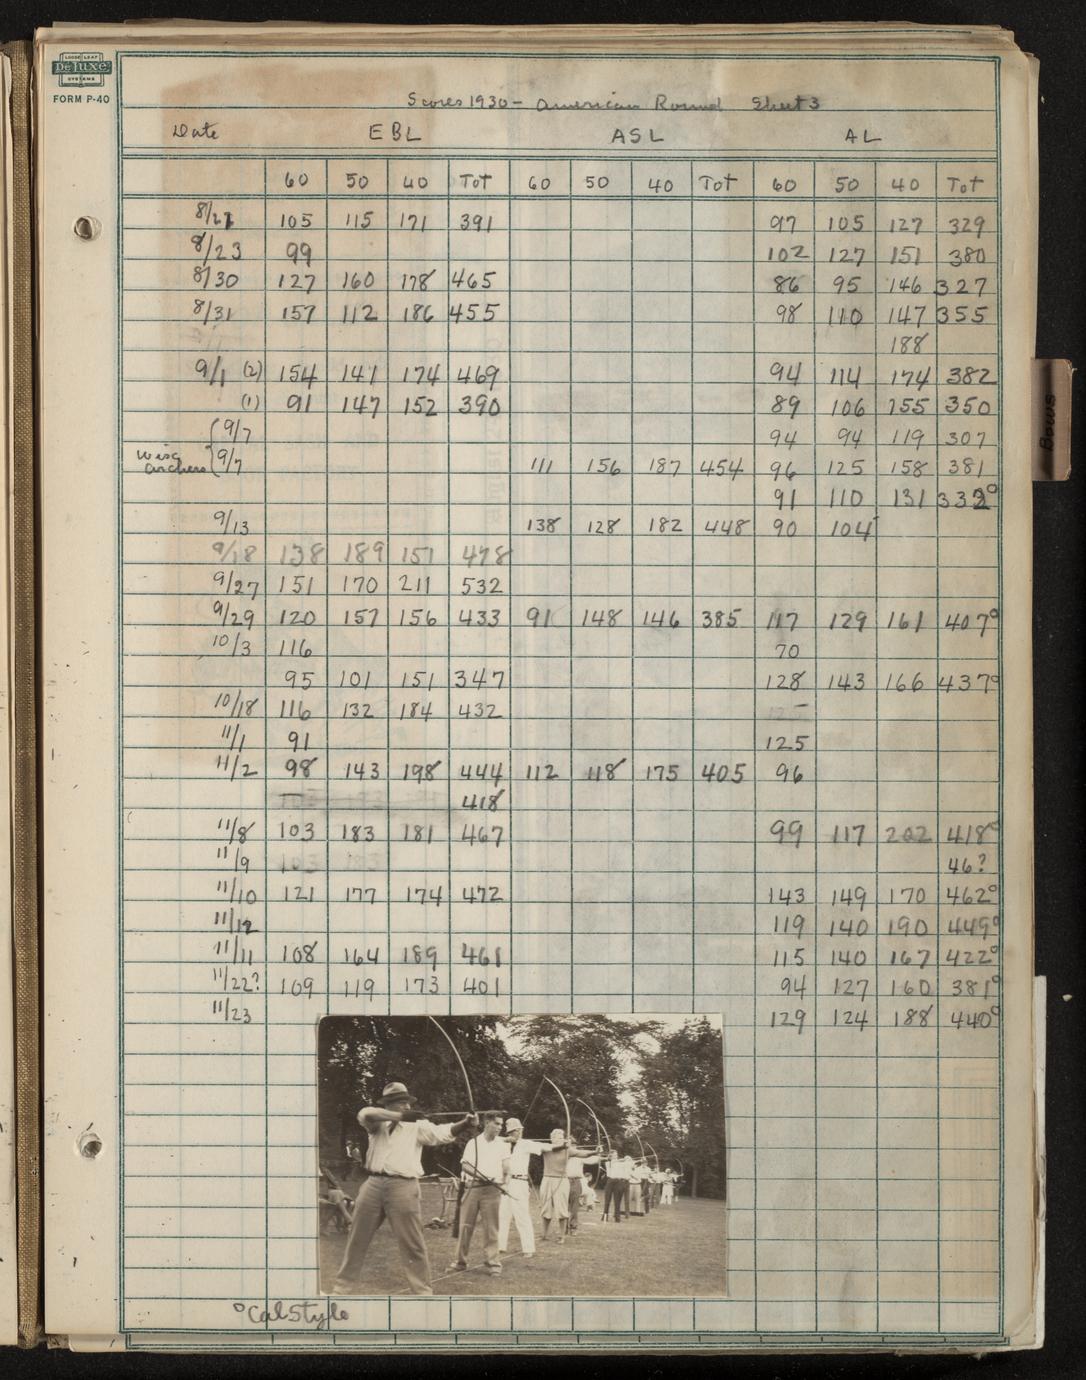 LOOSE LEAF
DeLuxe
SYSTEMS
FORM P-40
Scores 1930 - American Round Sheet 3
Date EBL ASL AL
60 50 40 Tot 60 50 40 Tot 60 50 40 Tot
8/21 105 115 171 391 97 105 127 329
8/23 99 102 127 151 380
8/30 127 160 178 465 86 95 146 327
8/31 157 112 186 455 98 110 147 355
188
9/1 (2) 154 141 174 469 94 114 174 382
(1) 91 147 152 390 89 106 155 350
9/7 94 94 119 307
Wisc Archers 9/7 111 156 187 454 96 125 158 381
91 110 131 332°
9/13 138 128 182 448 90 104
9/18 138 189 151 478
9/27 151 170 211 532
9/29 120 157 156 433 91 148 146 385 117 129 161 407°
10/3 116 70
95 101 151 347 128 143 166 437°
10/18 116 132 184 432
11/1 91 125
11/2 98 143 198 444 112 118 175 405 96
418
11/8 103 183 181 467 99 117 202 418°
11/9 103 183 46?
11/10 121 177 174 472 143 149 170 462°
11/12 119 140 190 449°
11/11 108 164 189 461 115 140 167 422°
11/22? 109 119 173 401 94 127 160 381°
11/23 129 124 188 440°
°Cal Style
Bows